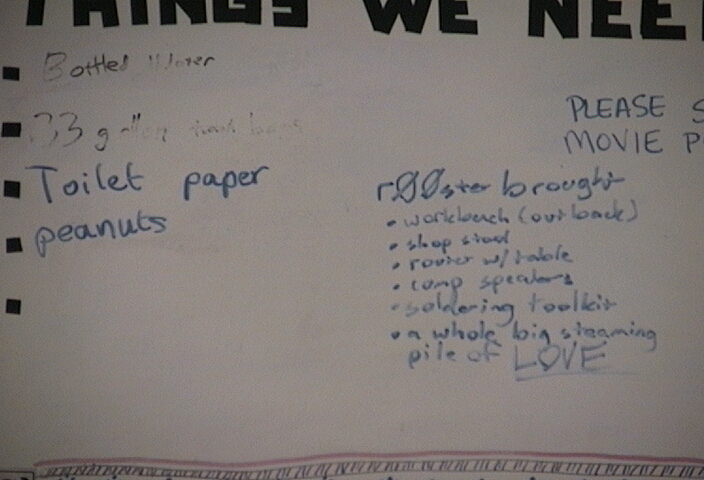 THINGS WE NEE
Bottled Water
33 gallon trash bags
Toilet paper
peanuts
PLEASE S
MOVIE P
rØØster brought
• workbench (out back)
• shop stool
• router w/ table
• comp speakers
• soldering toolkit
• a whole big steaming
pile of LOVE